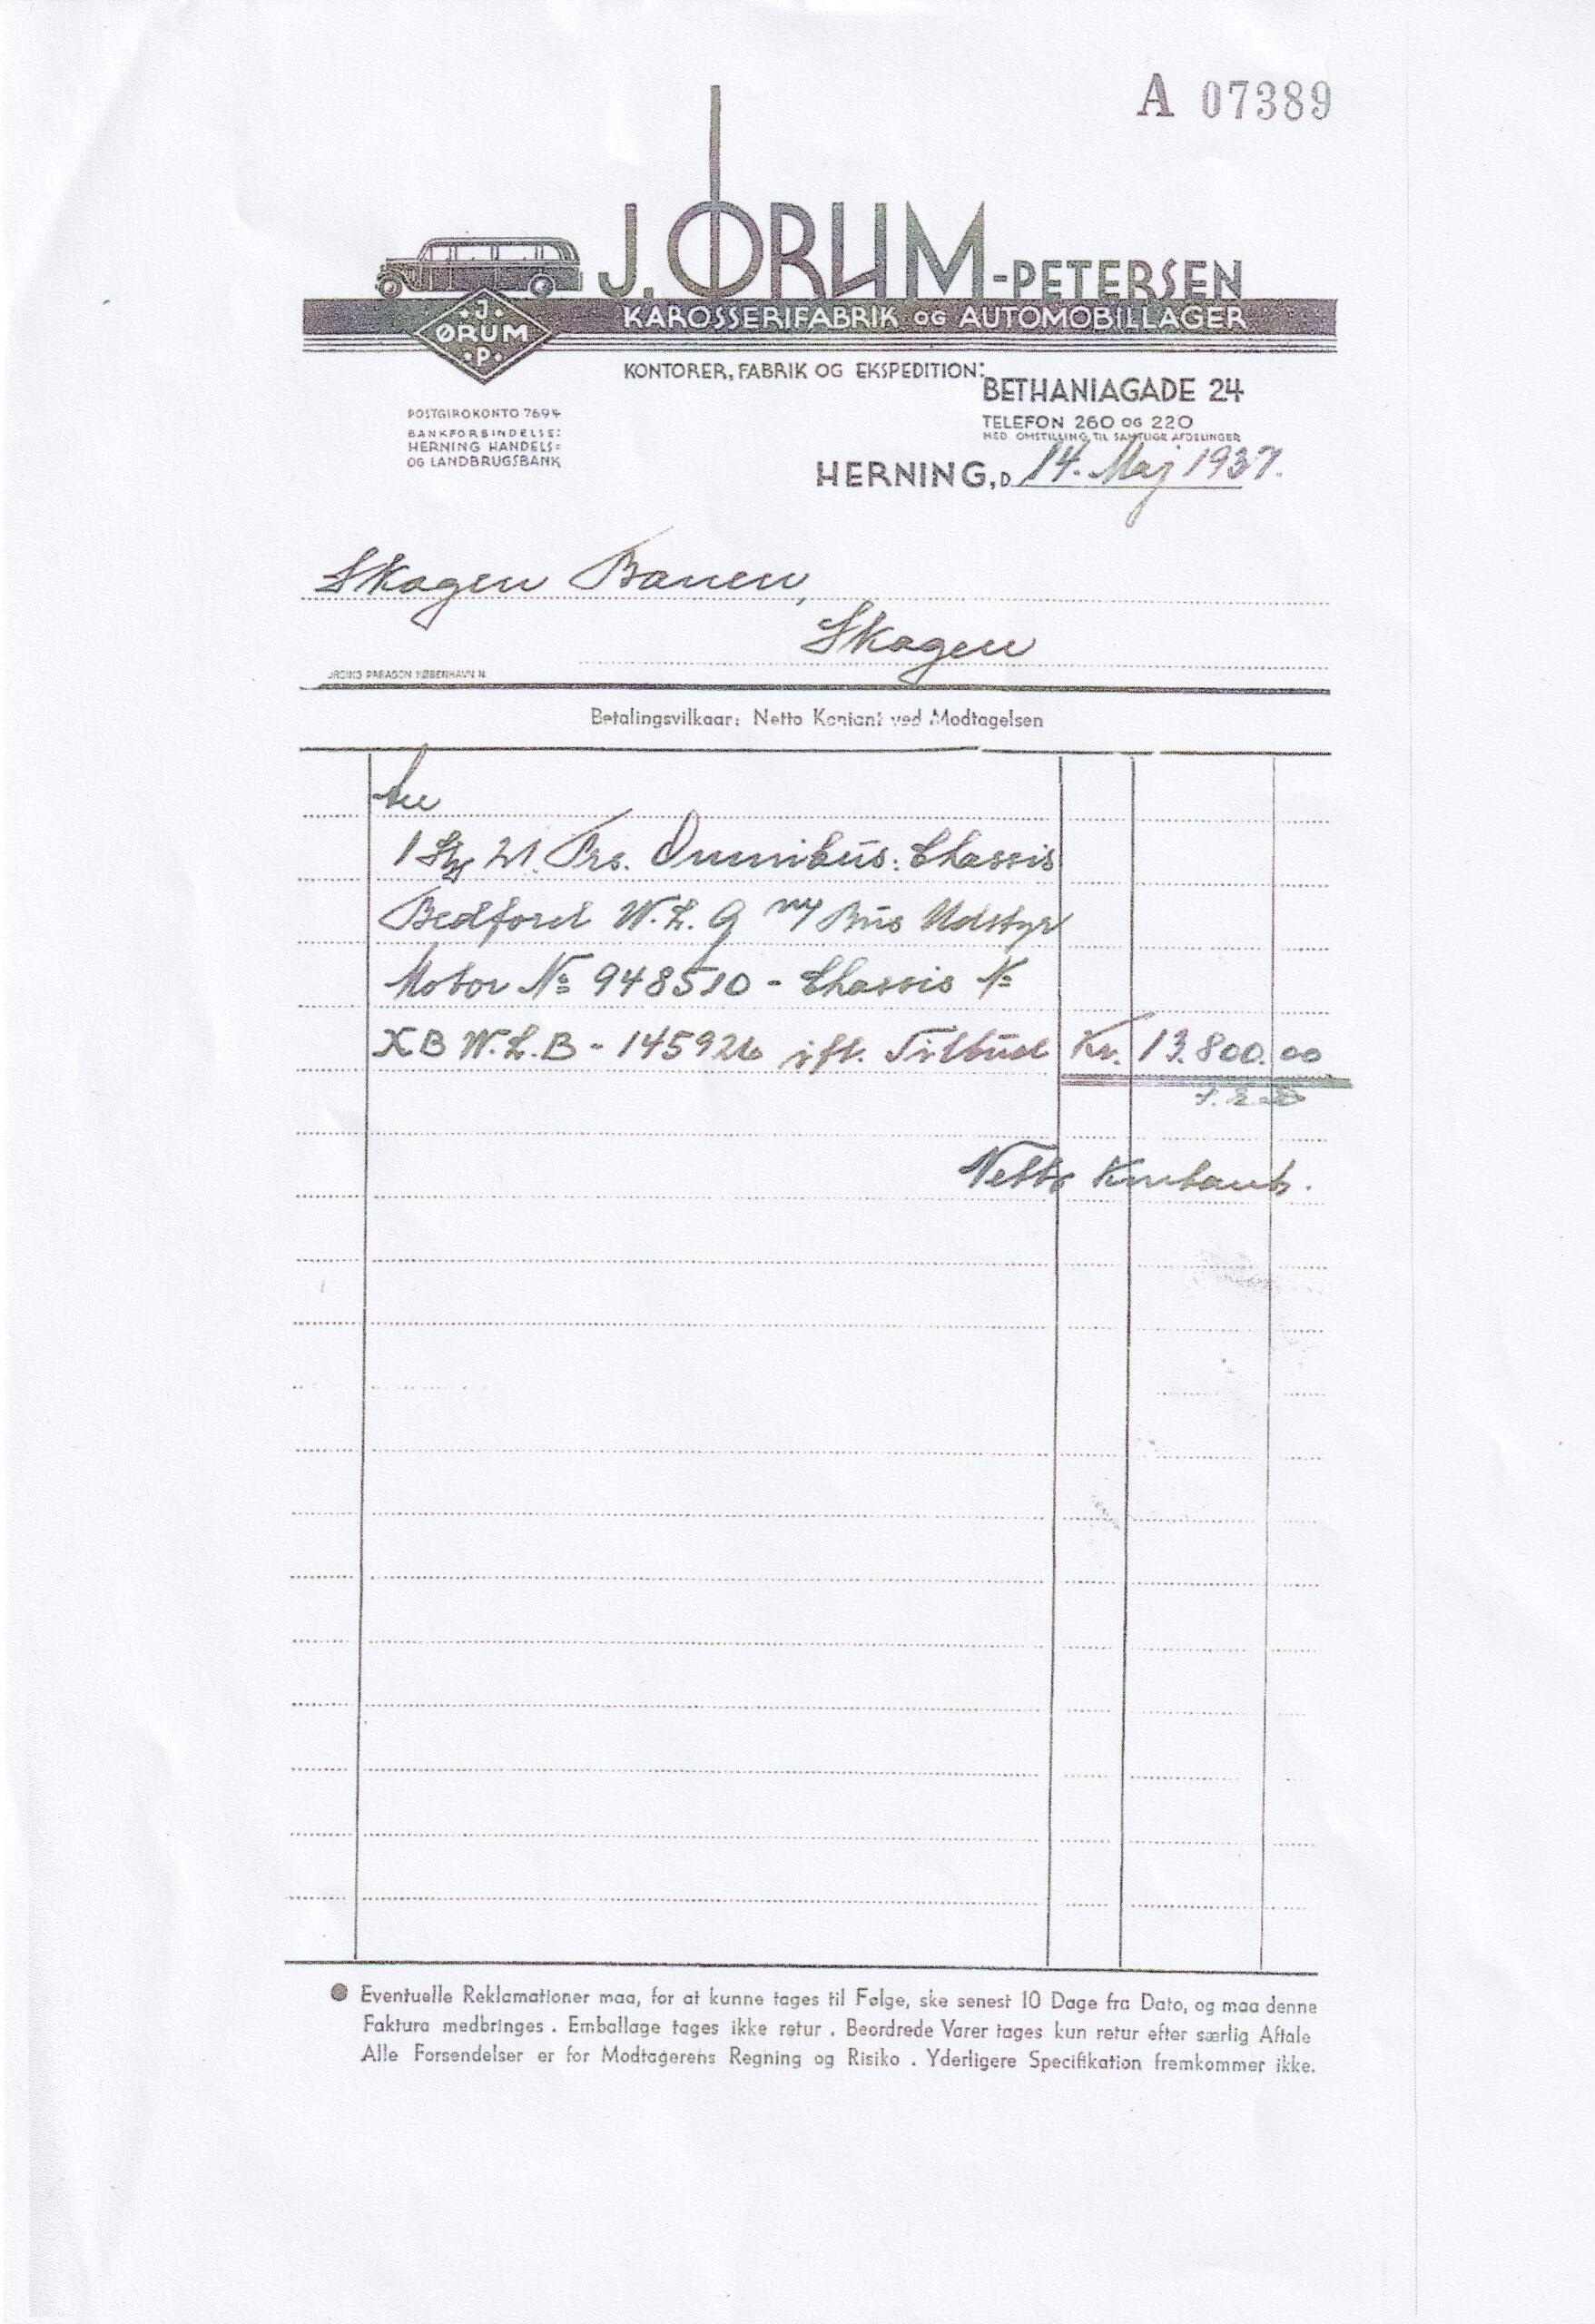 A 07389
J. ØRUM-PETERSEN
KAROSSERIFABRIK OG AUTOMOBILLAGER
J.
ØRUM
P.
KONTORER, FABRIK OG EKSPEDITION:
BETHANIAGADE 24
TELEFON 260 OG 220
MED OMSTILLING TIL SAMTLIGE AFDELINGER
POSTGIROKONTO 7694
BANKFORBINDELSE:
HERNING HANDELS=
OG LANDBRUGSBANK
HERNING, D. 14. Maj 1937.
Skagen Banen,
Skagen
PARAGON KØBENHAVN N.
Betalingsvilkaar: Netto Kontant ved Modtagelsen
1 Stk 21. Prs. Omnibus: Chassis
Bedford W.L.G ny Bus Udstyr
Motor No 948510 - Chassis No
XB W.L.B - 145926 ifl. Tilbud Kr. 13.800.00
Netto Kontant.
Eventuelle Reklamationer maa, for at kunne tages til Følge, ske senest 10 Dage fra Dato, og maa denne
Faktura medbringes . Emballage tages ikke retur . Beordrede Varer tages kun retur efter særlig Aftale
Alle Forsendelser er for Modtagerens Regning og Risiko . Yderligere Specifikation fremkommer ikke.